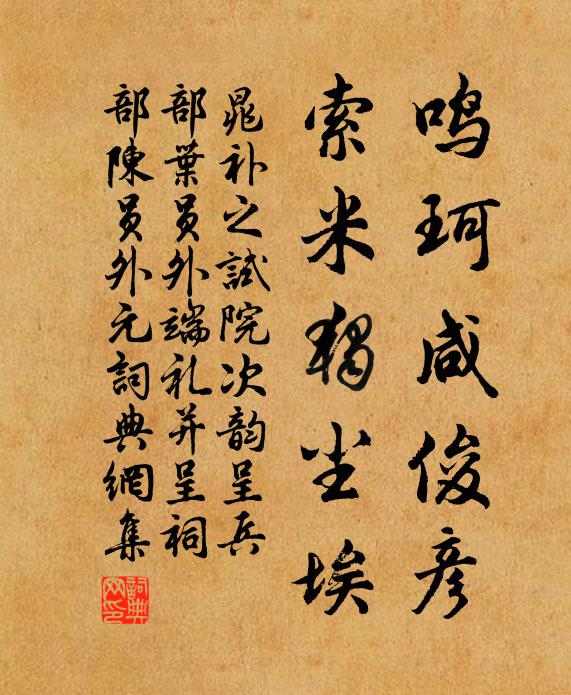 鸣珂咸俊彦
索米独尘埃
晁补之試院次韵呈兵
部葉员外端礼并呈祠
部陳员外元詞典網集
詞典
网印